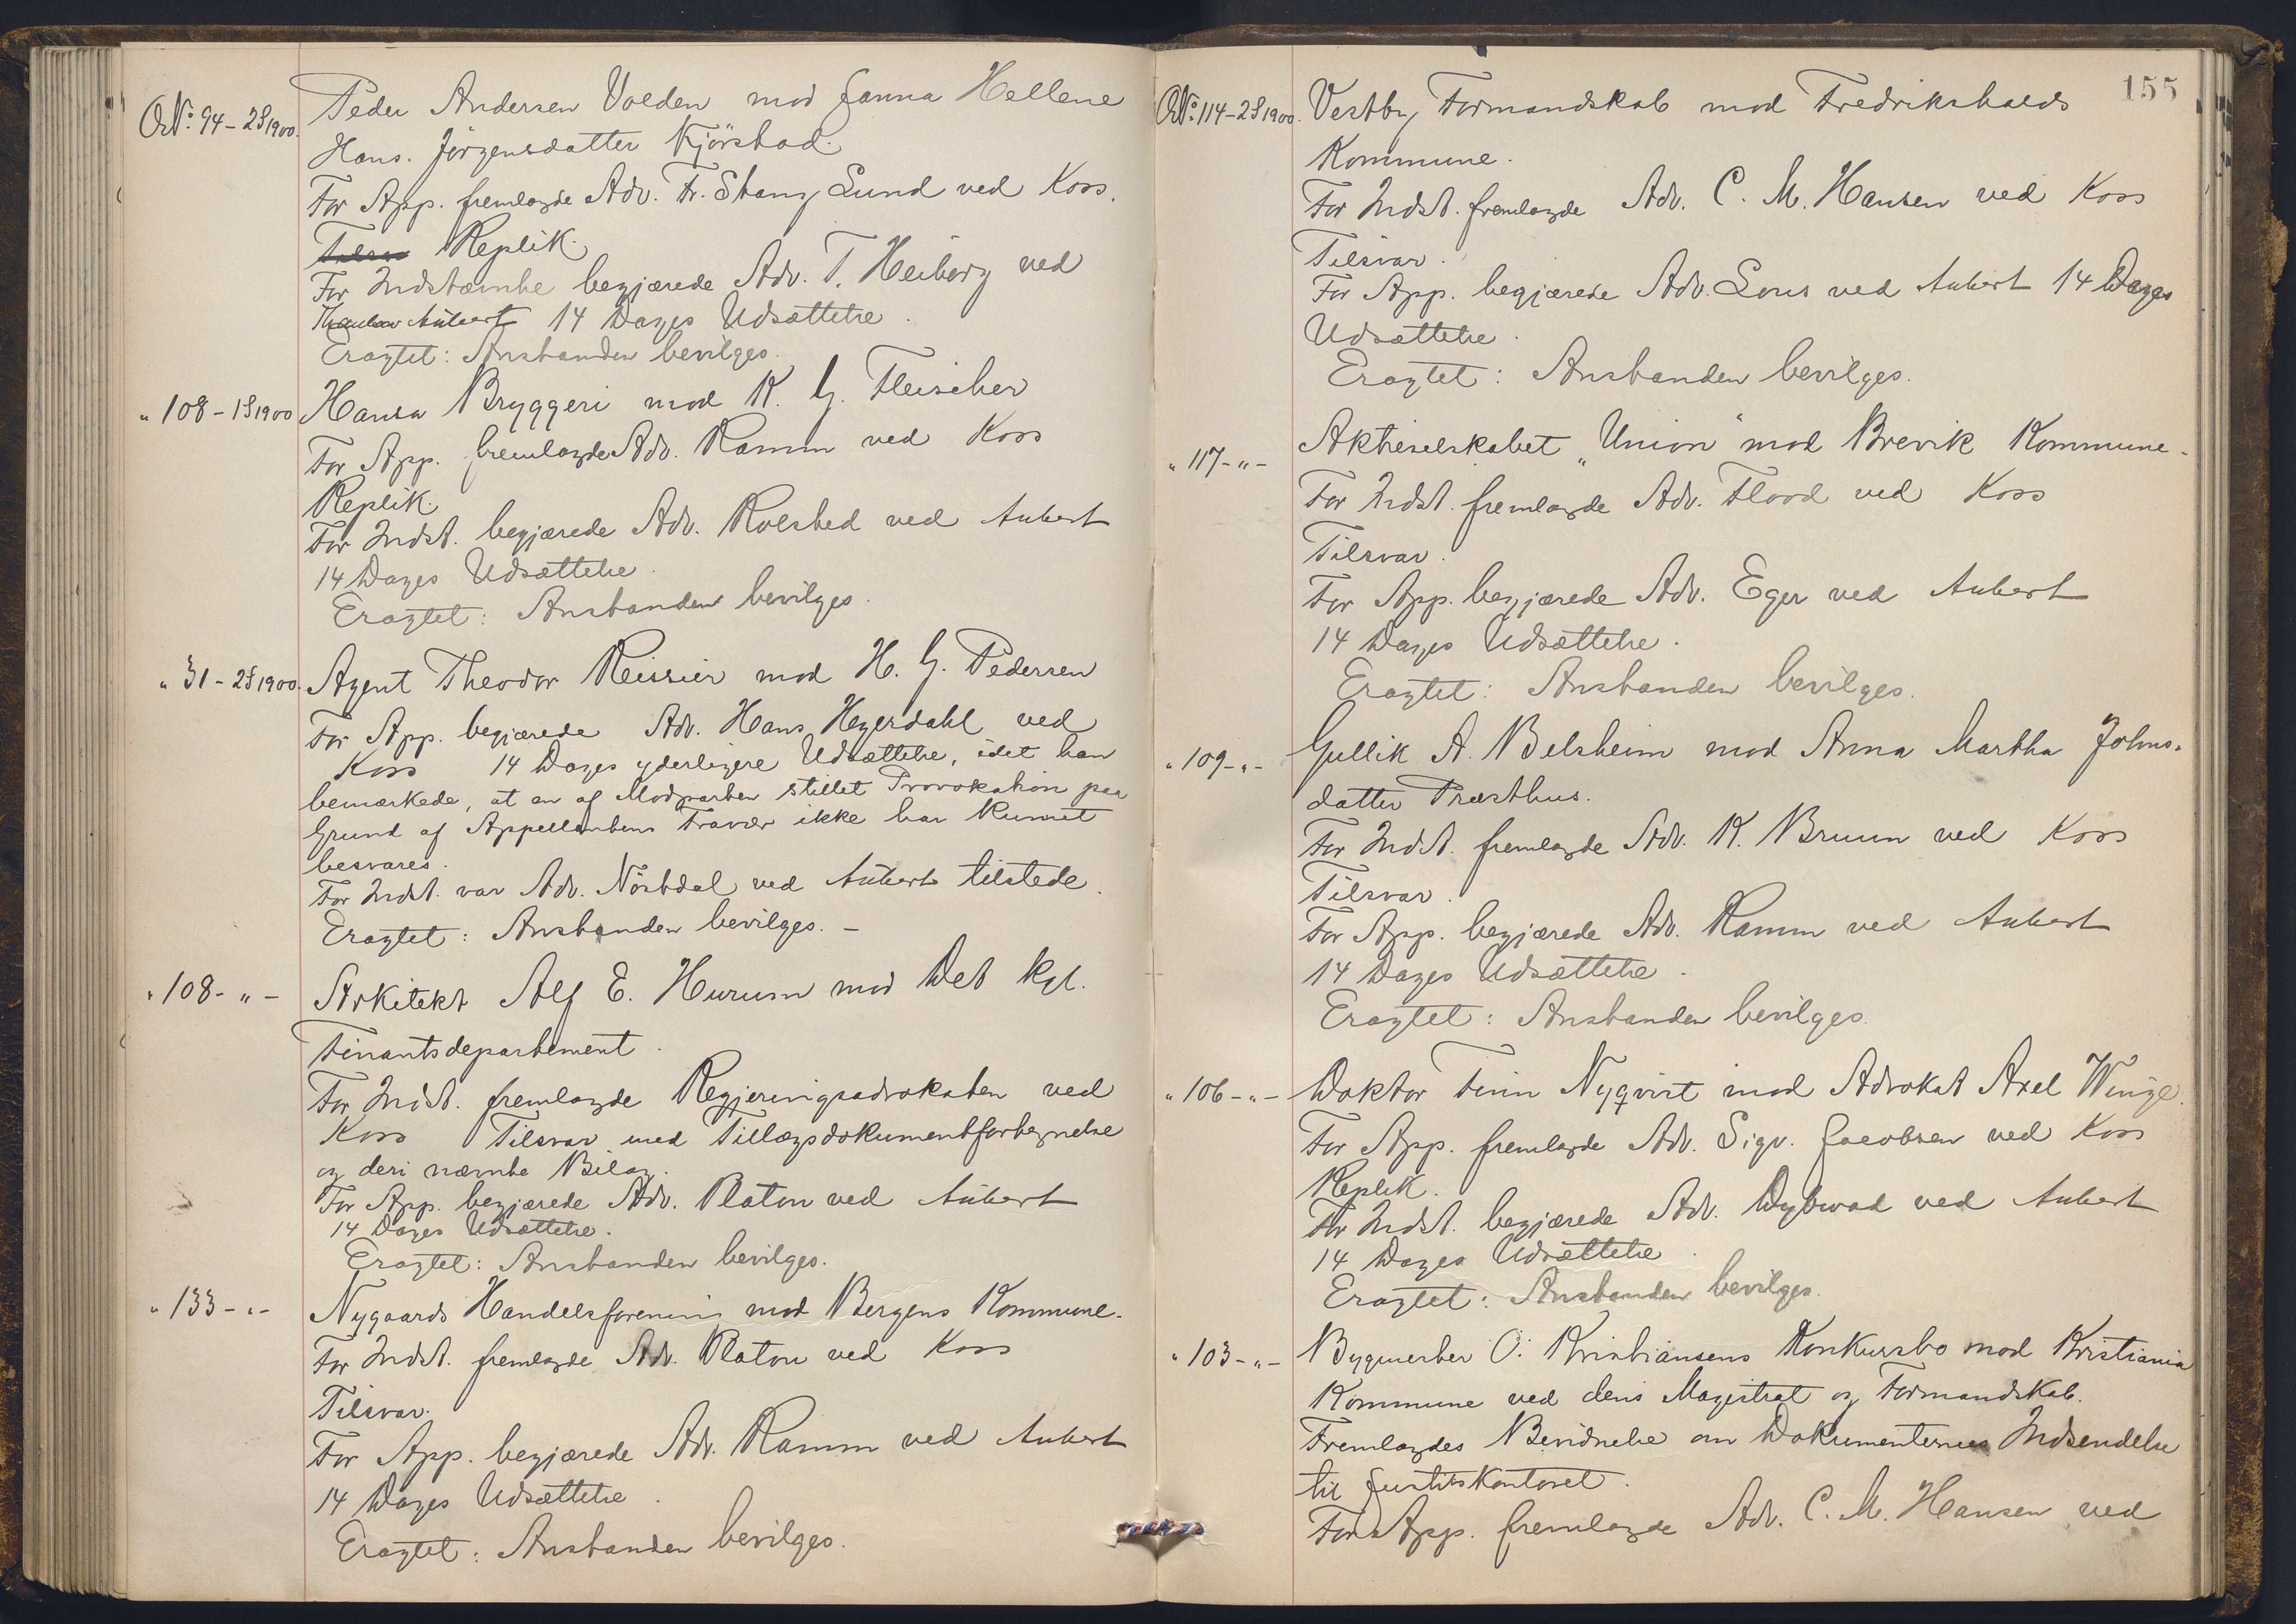 O.№: 94 - 2S 1900.
Peder Andersen Volden mod Janna Hellene
Hans. Jörgensdatter Kjörstad.
For App. fremlagde Adv. Fr. Stang Lund ved Koss.
Replik.
For Indstævnte begjærede Adv. T. Heiberg ved
Aubert 14 Dages Udsættelse.
Eragtet: Anstanden bevilges.
" 108 - 1S 1900
Hansa Bryggeri mod K. G. Fleischer
For App. fremlagde Adv. Ramm ved Koss
Replik.
For Indst. begjærede Adv. Rolsted ved Aubert
14 Dages Udsættelse.
Eragtet: Anstanden bevilges.
" 31 - 2S 1900.
Agent Theodor Reissier mod H. G. Pedersen
For App. begjærede Adv. Hans Heyerdahl ved
Koss 14 Dages yderligere Udsættelse, idet han
bemærkede, at en af Modparten stillet Provokation paa
Grund af Appellantens Fravær ikke har kunnet
besvares.
For Indst. var Adv. Nörstdal ved Aubert tilstede.
Eragtet: Anstanden bevilges. -
" 108 - " -
Arkitekt Alf E. Hurum mod Det kgl.
Finantsdepartement.
For Indst. fremlagde Regjeringsadvokaten ved
Koss Tilsvar med Tillægsdokumentfortegnelse
og deri nævnte Bilag.
For App. begjærede Adv. Platou ved Aubert
14 Dages Udsættelse.
Eragtet: Anstanden bevilges.
" 133 - " -
Nygaards Handelsforening mod Bergens Kommune.
For Indst. fremlagde Adv. Platou ved Koss
Tilsvar.
For App. begjærede Adv. Ramm ved Aubert
14 Dages Udsættelse.
Eragtet: Anstanden bevilges.
155
O.№: 114 - 2S 1900.
Vestby Formandskab mod Fredrikshalds
Kommune.
For Indst. fremlagde Adv. C. M. Hansen ved Koss
Tilsvar.
For App. begjærede Adv. Lous ved Aubert 14 Dages
Udsættelse.
Eragtet: Anstanden bevilges.
" 117 - " -
Aktieselskabet "Union" mod Brevik Kommune.
For Indst. fremlagde Adv. Flood ved Koss
Tilsvar.
For App. begjærede Adv. Eger ved Aubert
14 Dages Udsættelse.
Eragtet: Anstanden bevilges.
" 109 - " -
Gullik A. Belsheim mod Anna Martha Johns-
datter Præsthus.
For Indst. fremlagde Adv. K. Bruun ved Koss
Tilsvar.
For App. begjærede Adv. Ramm ved Aubert
14 Dages Udsættelse.
Eragtet: Anstanden bevilges.
" 106 - " -
Doktor Finn Nyqvist mod Advokat Axel Winge.
For App. fremlagde Adv. Sigv. Jacobsen ved Koss
Replik.
For Indst. begjærede Adv. Dybwad ved Aubert
14 Dages Udsættelse.
Eragtet: Anstanden bevilges.
" 103 - " -
Bygmester O. Kristiansens Konkursbo mod Kristiania
Kommune ved dens Magistrat og Formandskab.
Fremlagdes Bevidnelse om Dokumenternes Indsendelse
til Justitskontoret.
For App. fremlagde Adv. C. M. Hansen ved